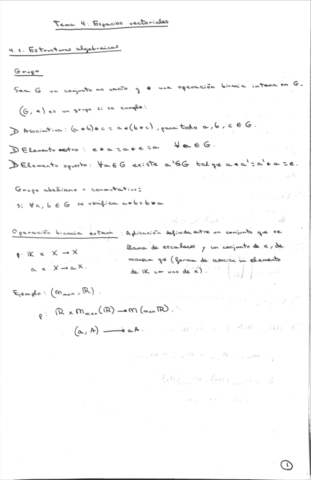 Tema 4. Espacios vectoriales
4.1. Estructuras algebraicas
Grupo
Sea G un conjunto no vacío y * una operación binaria interna en G.
(G, *) es un grupo si se cumple:
D Asociativa: (a*b)*c = a*(b*c), para todo a, b, c ∈ G.
D Elemento neutro: e*a = a*e = a ∀a ∈ G.
D Elemento opuesto: ∀a ∈ G existe a' ∈ G tal que a*a' = a'*a = e.
Grupo abeliano = conmutativo;
si ∀a, b ∈ G se verifica a*b = b*a
Operación binaria externa: Aplicación definida entre un conjunto que se
llama de escalares y un conjunto de x, de
p: K x X → X
manera que (forma de asociar un elemento
a x X → aX.
de K con uno de x).
Ejemplo: (Mmxn, R).
p: R x Mmxn(R) → M(mxn R)
(a, A) → aA
1